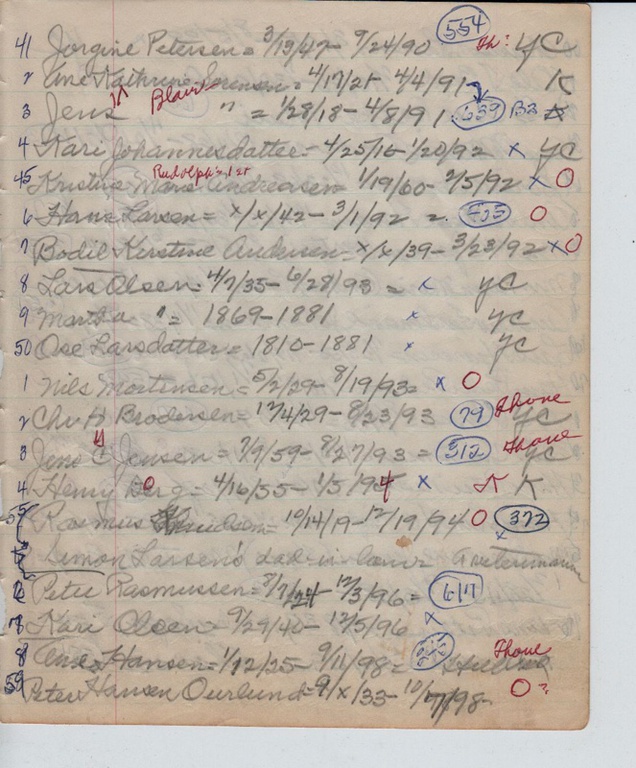 554
41 Jorgine Petersen = 3/13/47 - 9/24/90 Th: YC
2 Ane Kathrine Sorensen = 4/17/21 - 4/4/91 K
3 Jens K Blair " = 1/28/18 - 4/8/91 639 B2
4 Kari Johannesdatter = 4/25/16 - 1/20/92 x YC
Rudolph's 1st
45 Kristine Marie Andreasen = 1/19/60 - 2/5/92 x O
6 Hans Larsen = x/x/42 - 3/1/92 O
7 Bodil Kerstine Andersen = x/x/39 - 3/23/92 x O
8 Lars Olsen = 4/7/35 - 6/28/93 = x YC
9 Martha " = 1869 - 1881 x YC
50 Ose Larsdatter = 1810 - 1881 x YC
1 Nils Mortensen = 5/2/29 - 8/19/93 = x O
2 Chr H Brodersen = 12/4/29 - 8/23/93 79 Thone YC
3 Jens C Jensen = 7/9/59 - 8/27/93 = 312 Thone YC
4 Henry Berg = 4/16/55 - 1/5/94 x K K
55 Rasmus Knudson = 10/14/19 - 12/19/94 O 372
x
Simon Larsen's dad-in-law
Peter Rasmussen = 8/7/24 - 12/3/96 = 617
Kari Olsen = 9/29/40 - 12/5/96 x
8 Ane Hansen = 1/12/35 - 9/11/98 = Thone
59 Peter Hansen Ourlund = 9/x/33 - 10/17/98 O?